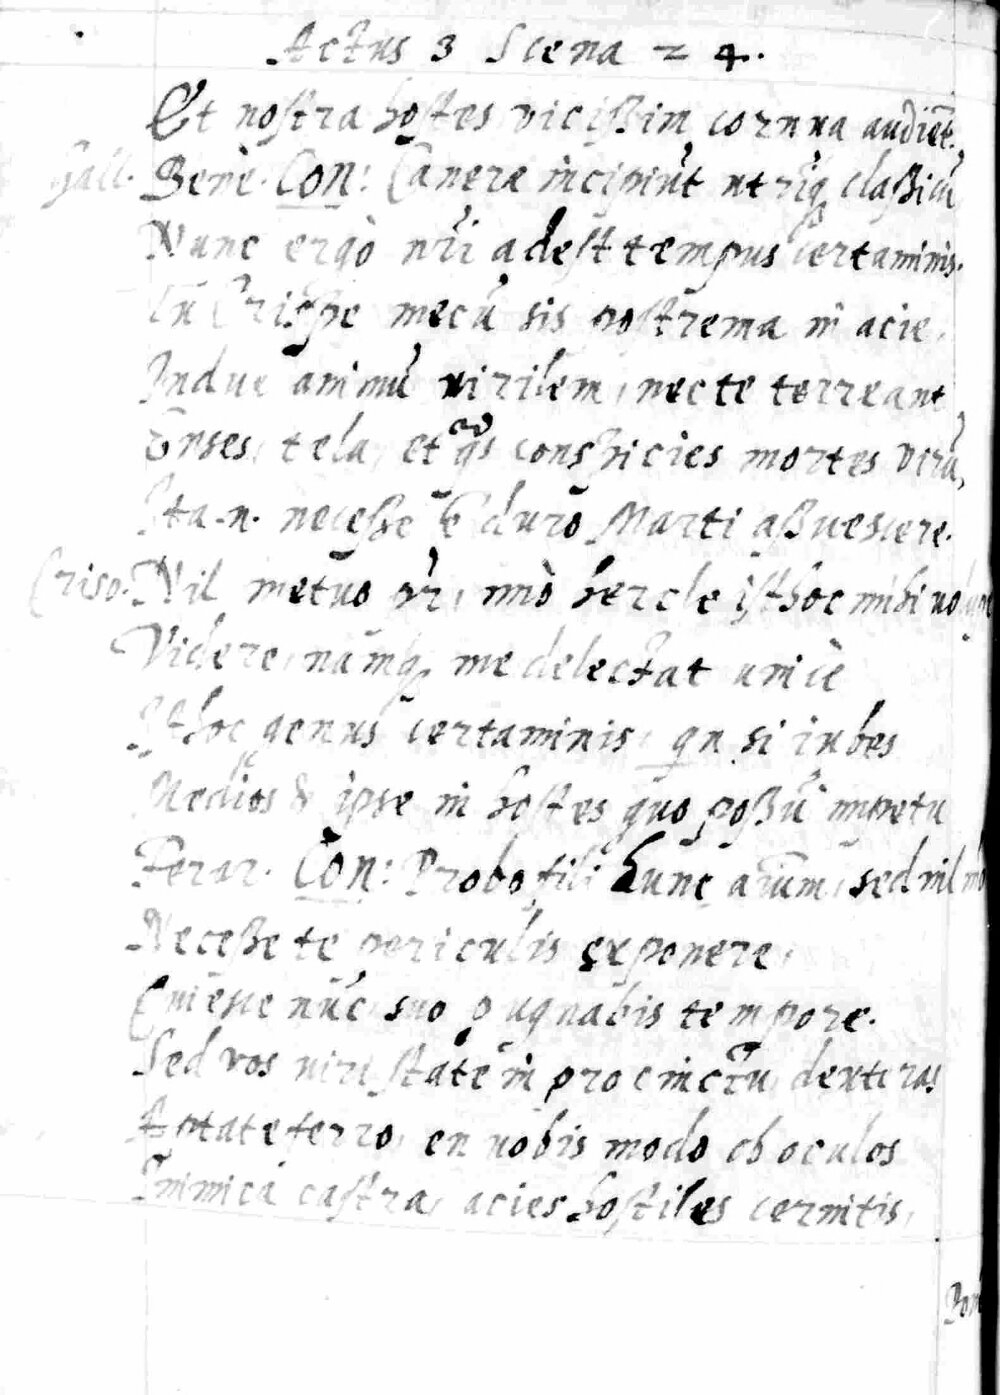 Actus 3 Scena 2 4.
Et nostra hostes vicißim cornua audiēt.
Gall. Benè. Con: Canere incipiūt utriq claßicū
Nunc ergò nr̄i adest tempus certaminis.
Tu Crispe mecū sis postrema in acie.
Indue animū virilem, nec te terreant
Enses, tela, et qs conspicies mortes virū,
Ita .n. neceße ē duro Marti aßuescere.
Criso. Nil metuo pr̄, imò hercle isthoc mihi
Videre, namq me delectat unicè
Isthoc genus certaminis, qn si iubes
Medios & ipse in hostes quo poßū impetu
Ferar. Con: Probo fili hunc aīum, sed nil
Neceße te periculis exponere,
Quiesce nūc, suo pugnabis tempore.
Sed vos viri state in procinctu, dexteras
Aptate ferro, en vobis modo ob oculos
Inimica castra, acies hostiles cernitis,